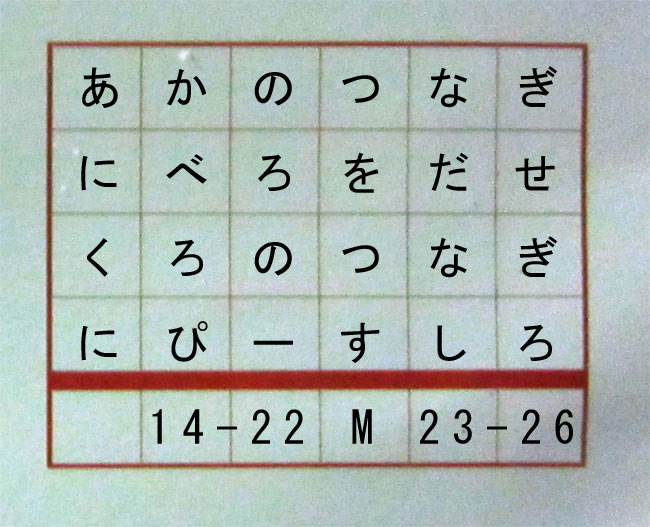 あかのつなぎ
にべろをだせ
くろのつなぎ
にぴーすしろ
14-22 M 23-26